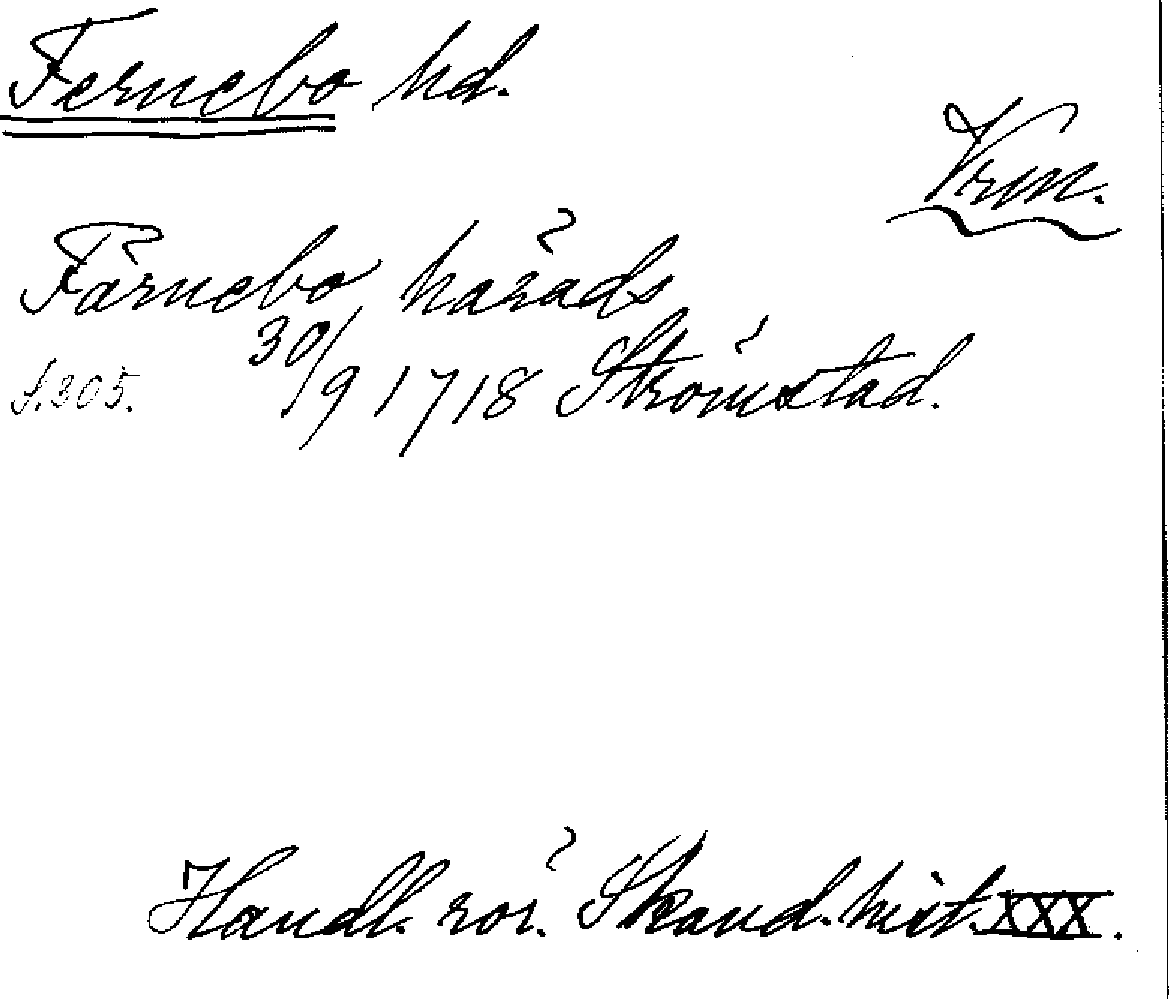 Fernebo hd.
Vrm.
Färnebo härads
S. 305. 30/9 1718 Strömstad.
Handl. rör. Skand. hist. XXX.